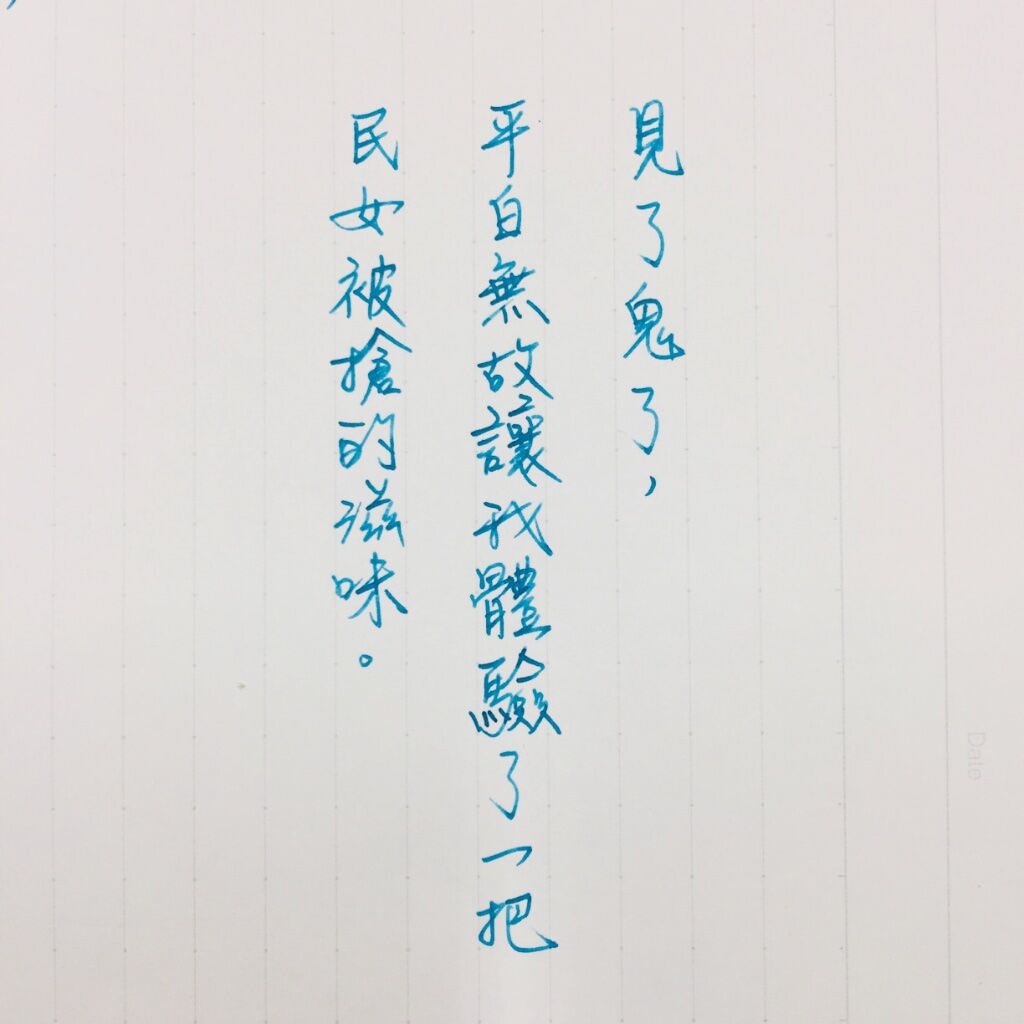 見了鬼了，
平白無故讓我體驗了一把
民女被搶的滋味。
Date